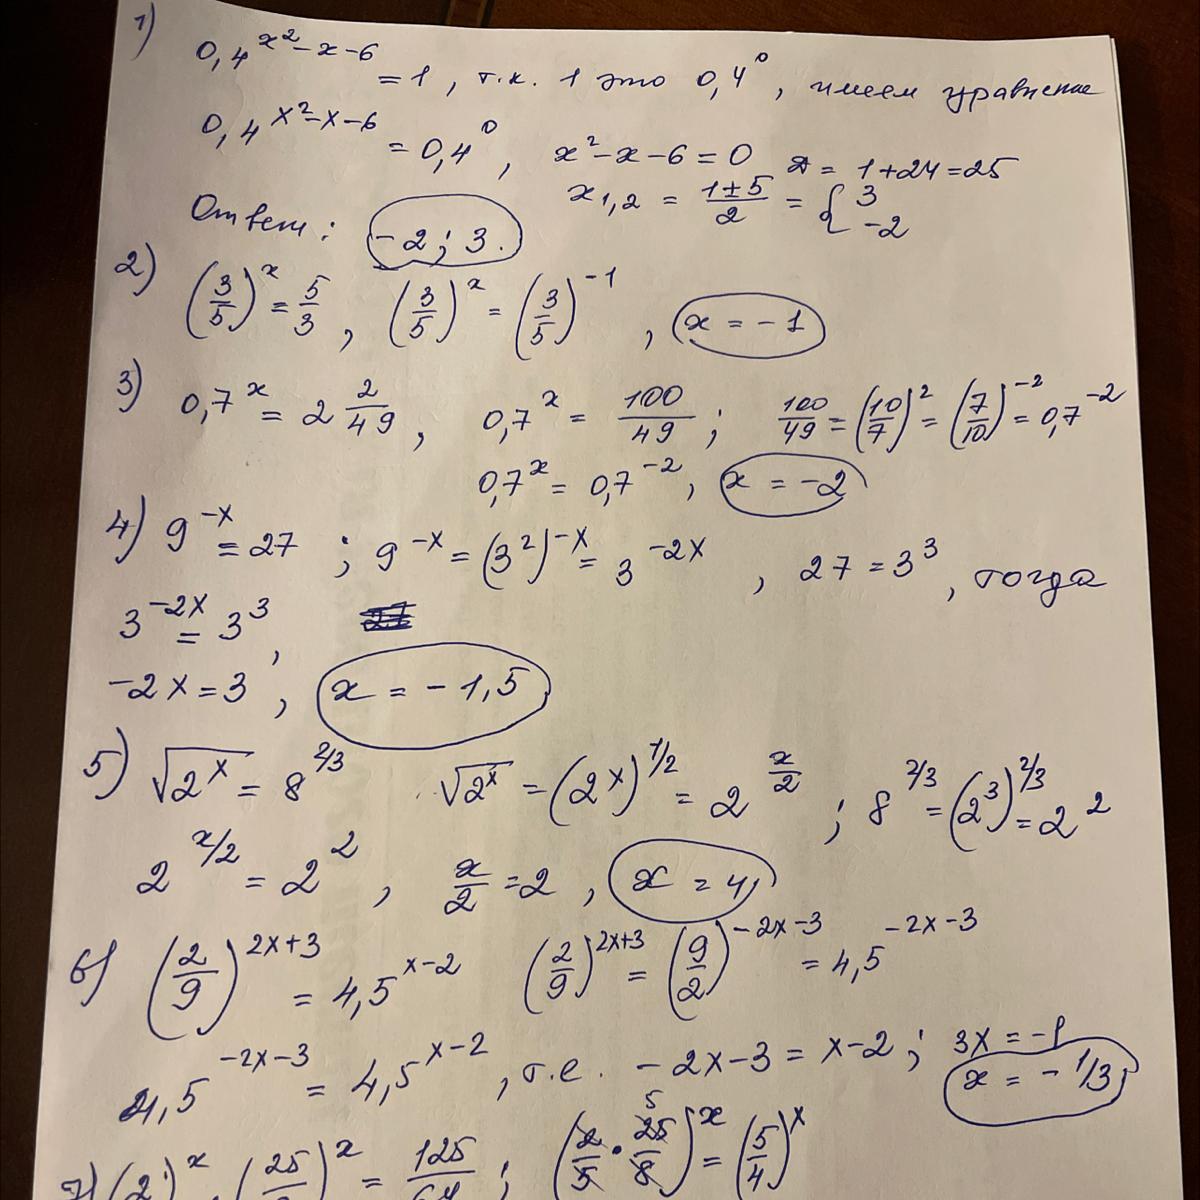 1) 0,4^(x²-x-6) = 1, т.к. 1 это 0,4⁰, имеем уравнение
0,4^(x²-x-6) = 0,4⁰, x²-x-6=0 D = 1+24=25
x₁,₂ = (1±5)/2 = { 3 -2
Ответ: -2; 3.
2) (3/5)^x = 5/3, (3/5)^x = (3/5)^(-1), x = -1
3) 0,7^x = 2 2/49, 0,7^x = 100/49; 100/49 = (10/7)² = (7/10)^(-2) = 0,7^(-2)
0,7^x = 0,7^(-2), x = -2
4) 9^(-x) = 27; 9^(-x) = (3²)^(-x) = 3^(-2x), 27 = 3³, тогда
3^(-2x) = 3³,
-2x = 3, x = -1,5
5) √(2^x) = 8^(2/3) √(2^x) = (2^x)^(1/2) = 2^(x/2); 8^(2/3) = (2³)^(2/3) = 2²
2^(x/2) = 2², x/2 = 2, x = 4,
6) (2/9)^(2x+3) = 4,5^(x-2) (2/9)^(2x+3) = (9/2)^(-2x-3) = 4,5^(-2x-3)
4,5^(-2x-3) = 4,5^(x-2), т.е. -2x-3 = x-2; 3x = -1
x = -1/3,
7) (2 )^x · (25/ )^x = 125/64; (2/5 · 25/8)^x = (5/4)^x